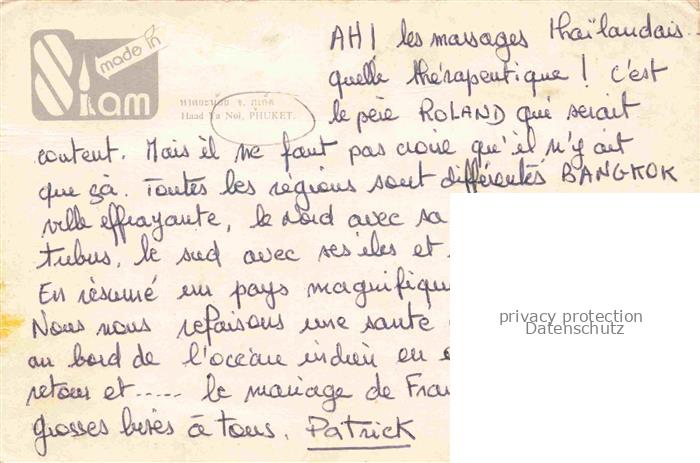 made in
Siam
หาดยะหน้อย จ. ภูเก็ต
Haad Ya Noi, PHUKET.
AH! les massages thaïlandais
quelle thérapeutique! c'est
le père ROLAND qui serait
content. Mais il ne faut pas croire qu'il n'y ait
que çà. Toutes les régions sont différentes BANGKOK
ville effrayante, le Nord avec sa
tribus, le sud avec ses iles et
En résumé un pays magnifiqu
Nous nous refaisons une santé
au bord de l'océan indien en
retour et ..... le mariage de Fra
grosses bises à tous. Patrick
privacy protection
Datenschutz